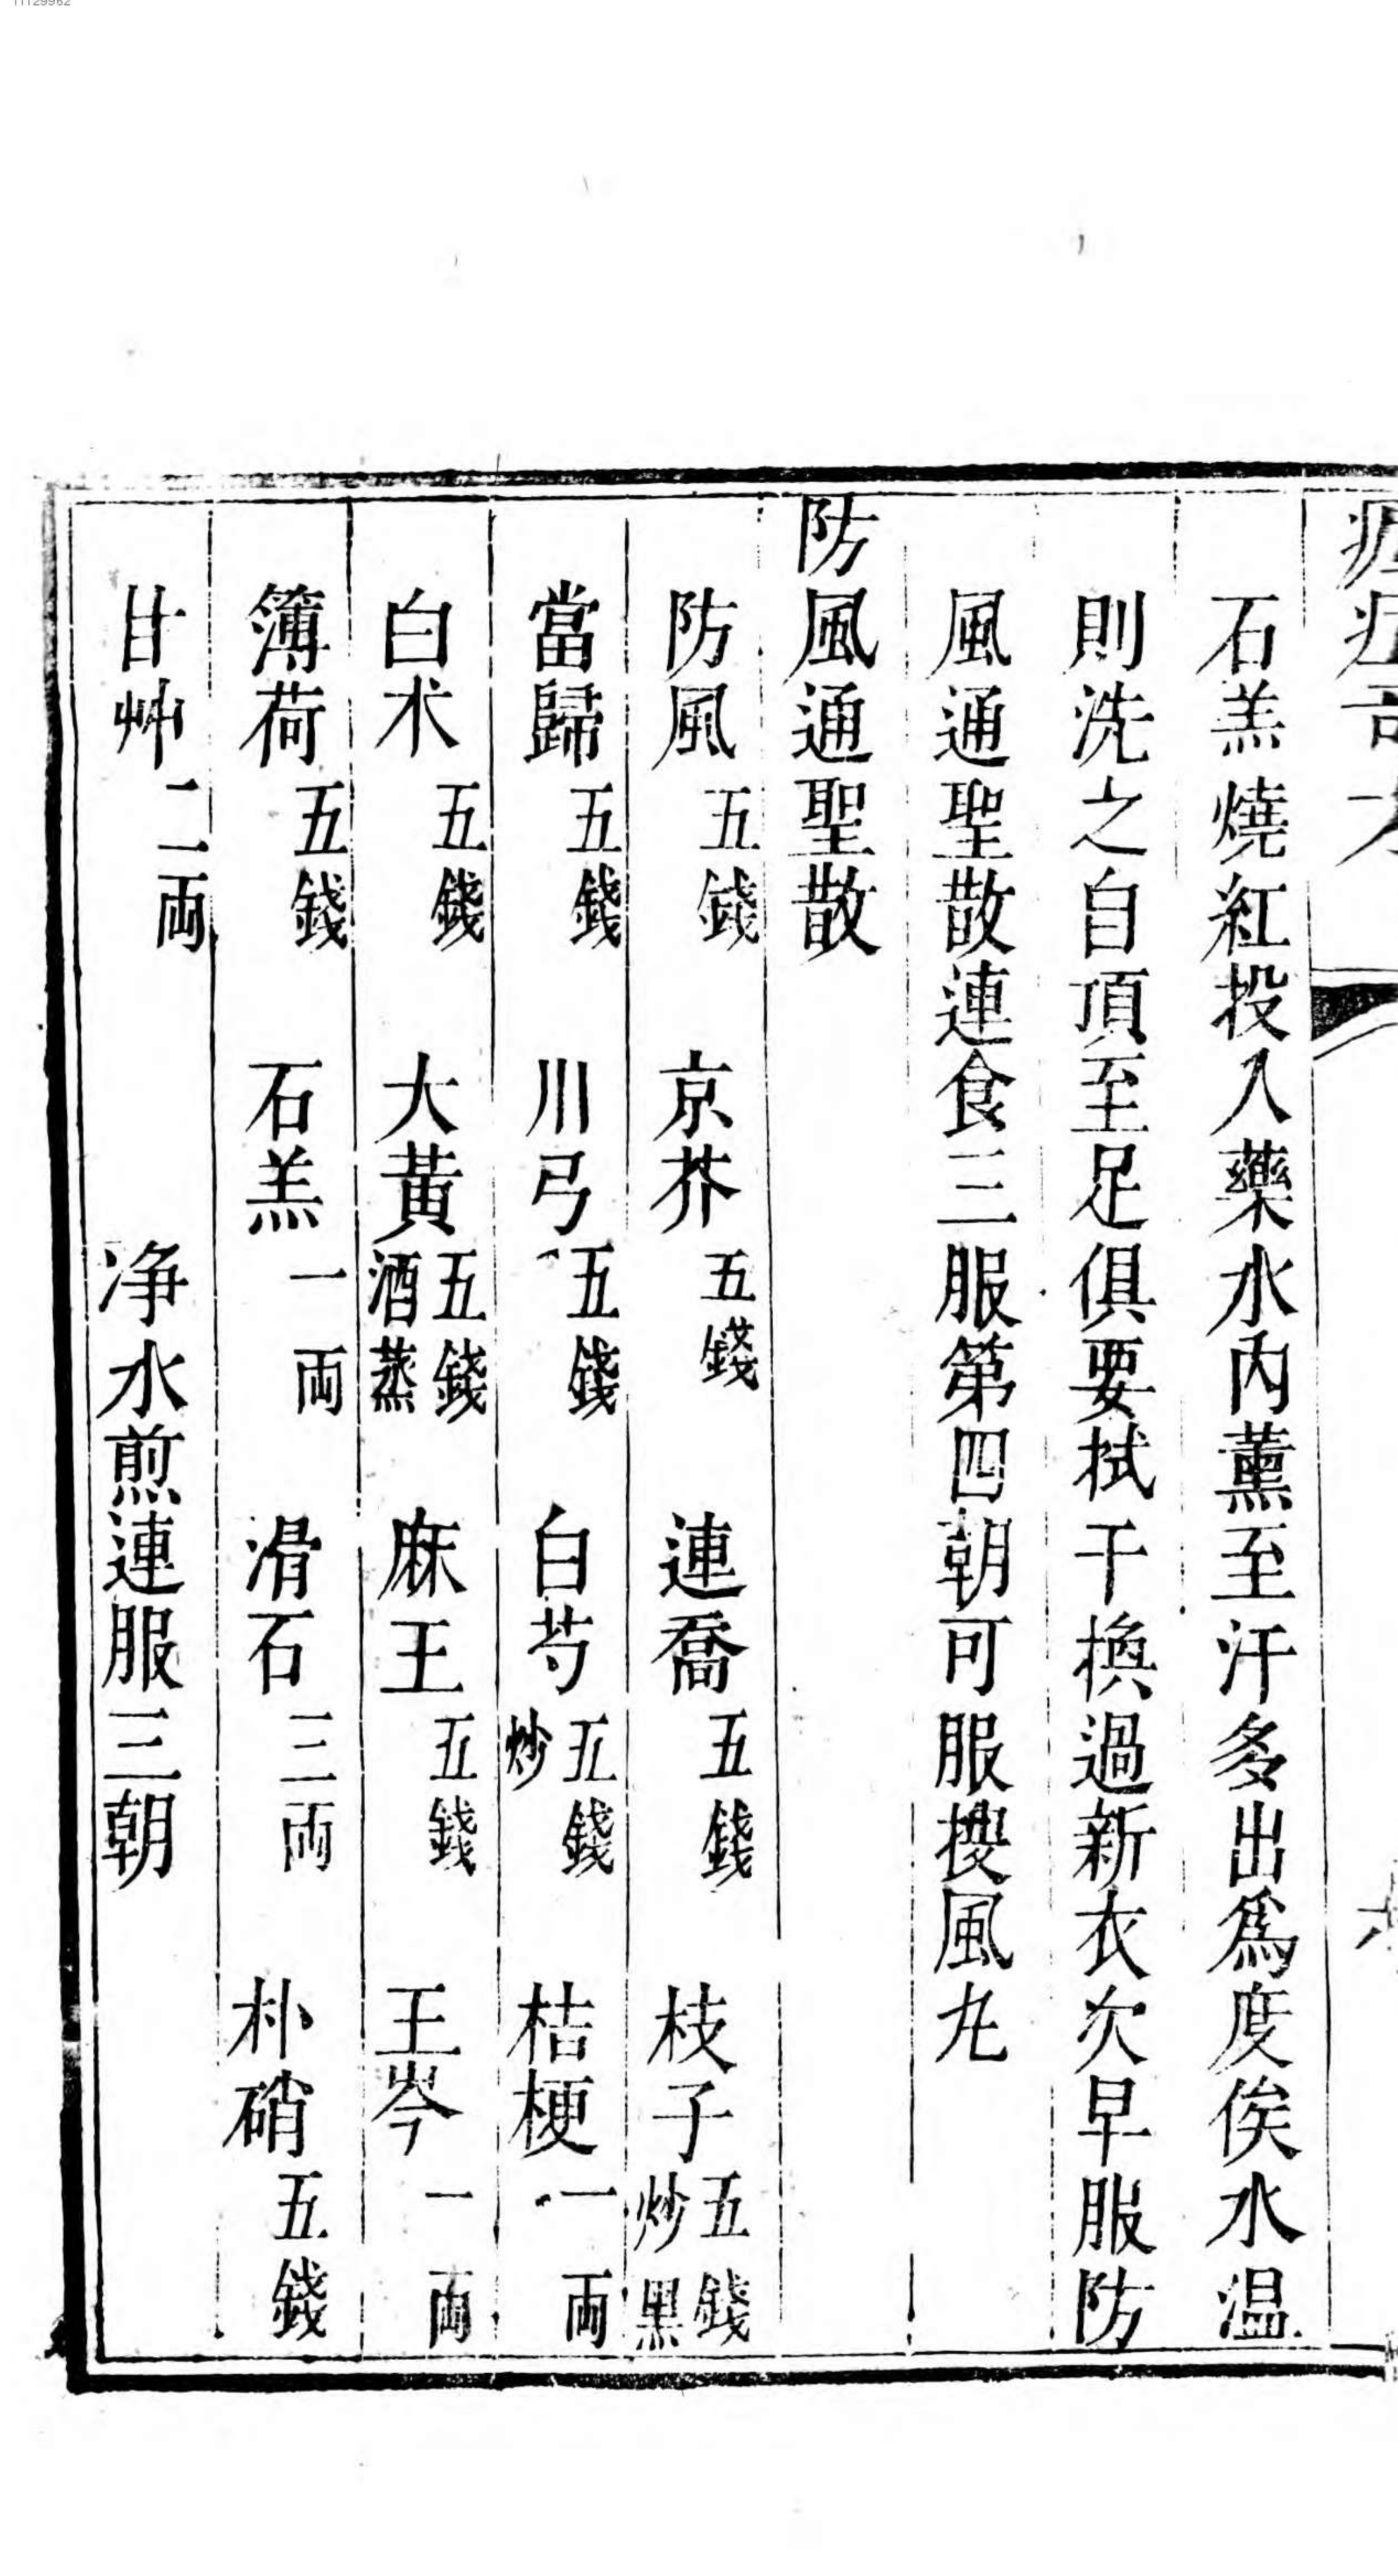 11129962
石羔燒紅投入藥水內薰至汗多出爲度俟水温
則洗之自頂至足俱要拭干換過新衣次早服防
風通聖散連食三服第四朝可服搜風丸
防風通聖散
防風五錢 京芥五錢 連喬五錢 枝子五錢炒黑
當歸五錢 川弓五錢 白芍五錢炒 桔梗一両
白朮五錢 大黃五錢酒蒸 麻王五錢 王岑一両
簿荷五錢 石羔一両 滑石三両 朴硝五錢
甘艸二両 净水煎連服三朝